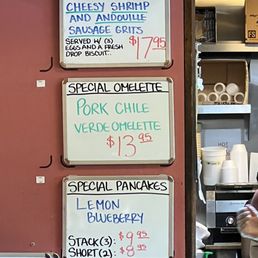 CHEESY SHRIMP
AND ANDOUILLE
SAUSAGE GRITS
SERVED W/ (3)
EGGS AND A FRESH
DROP BISCUIT.
$17.95
SPECIAL OMELETTE
PORK CHILE
VERDE OMELETTE
$13.95
SPECIAL PANCAKES
LEMON
BLUEBERRY
STACK(3): $9.95
SHORT(2): $8.95